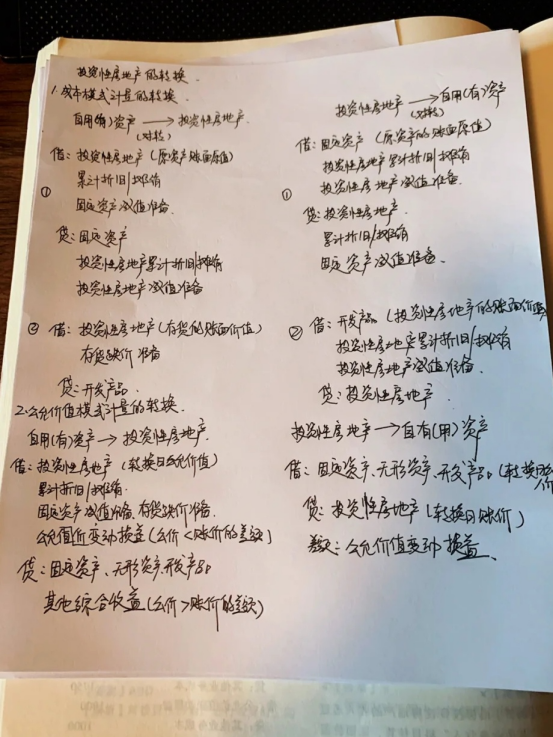 投资性房地产的转换.
1.成本模式计量的转换.
自用(有)资产 → 投资性房地产.
(对转)
借：投资性房地产（原资产账面原值）
累计折旧/摊销
①
固定资产减值准备.
贷：固定资产
投资性房地产累计折旧/摊销
投资性房地产减值准备
② 借：投资性房地产（存货的账面价值）
存货跌价准备
贷：开发产品.
2.公允价值模式计量的转换.
自用(有)资产 → 投资性房地产.
借：投资性房地产（转换日公允价值）
累计折旧/摊销.
固定资产减值准备、存货跌价准备.
公允价值变动损益（公价<账价的差额）
贷：固定资产、无形资产、开发产品
其他综合收益（公价>账价的差额）
投资性房地产 → 自用(有)资产
(对转)
借：固定资产（原资产的账面原值）
投资性房地产累计折旧/摊销
投资性房地产减值准备.
①
贷：投资性房地产.
累计折旧/摊销
固定资产减值准备.
② 借：开发产品（投资性房地产的账面价值
投资性房地产累计折旧/摊销
投资性房地产减值准备.
贷：投资性房地产.
投资性房地产 → 自有(用)资产
借：固定资产、无形资产、开发产品（转换
价
贷：投资性房地产（转换日账价）
差额：公允价值变动损益.